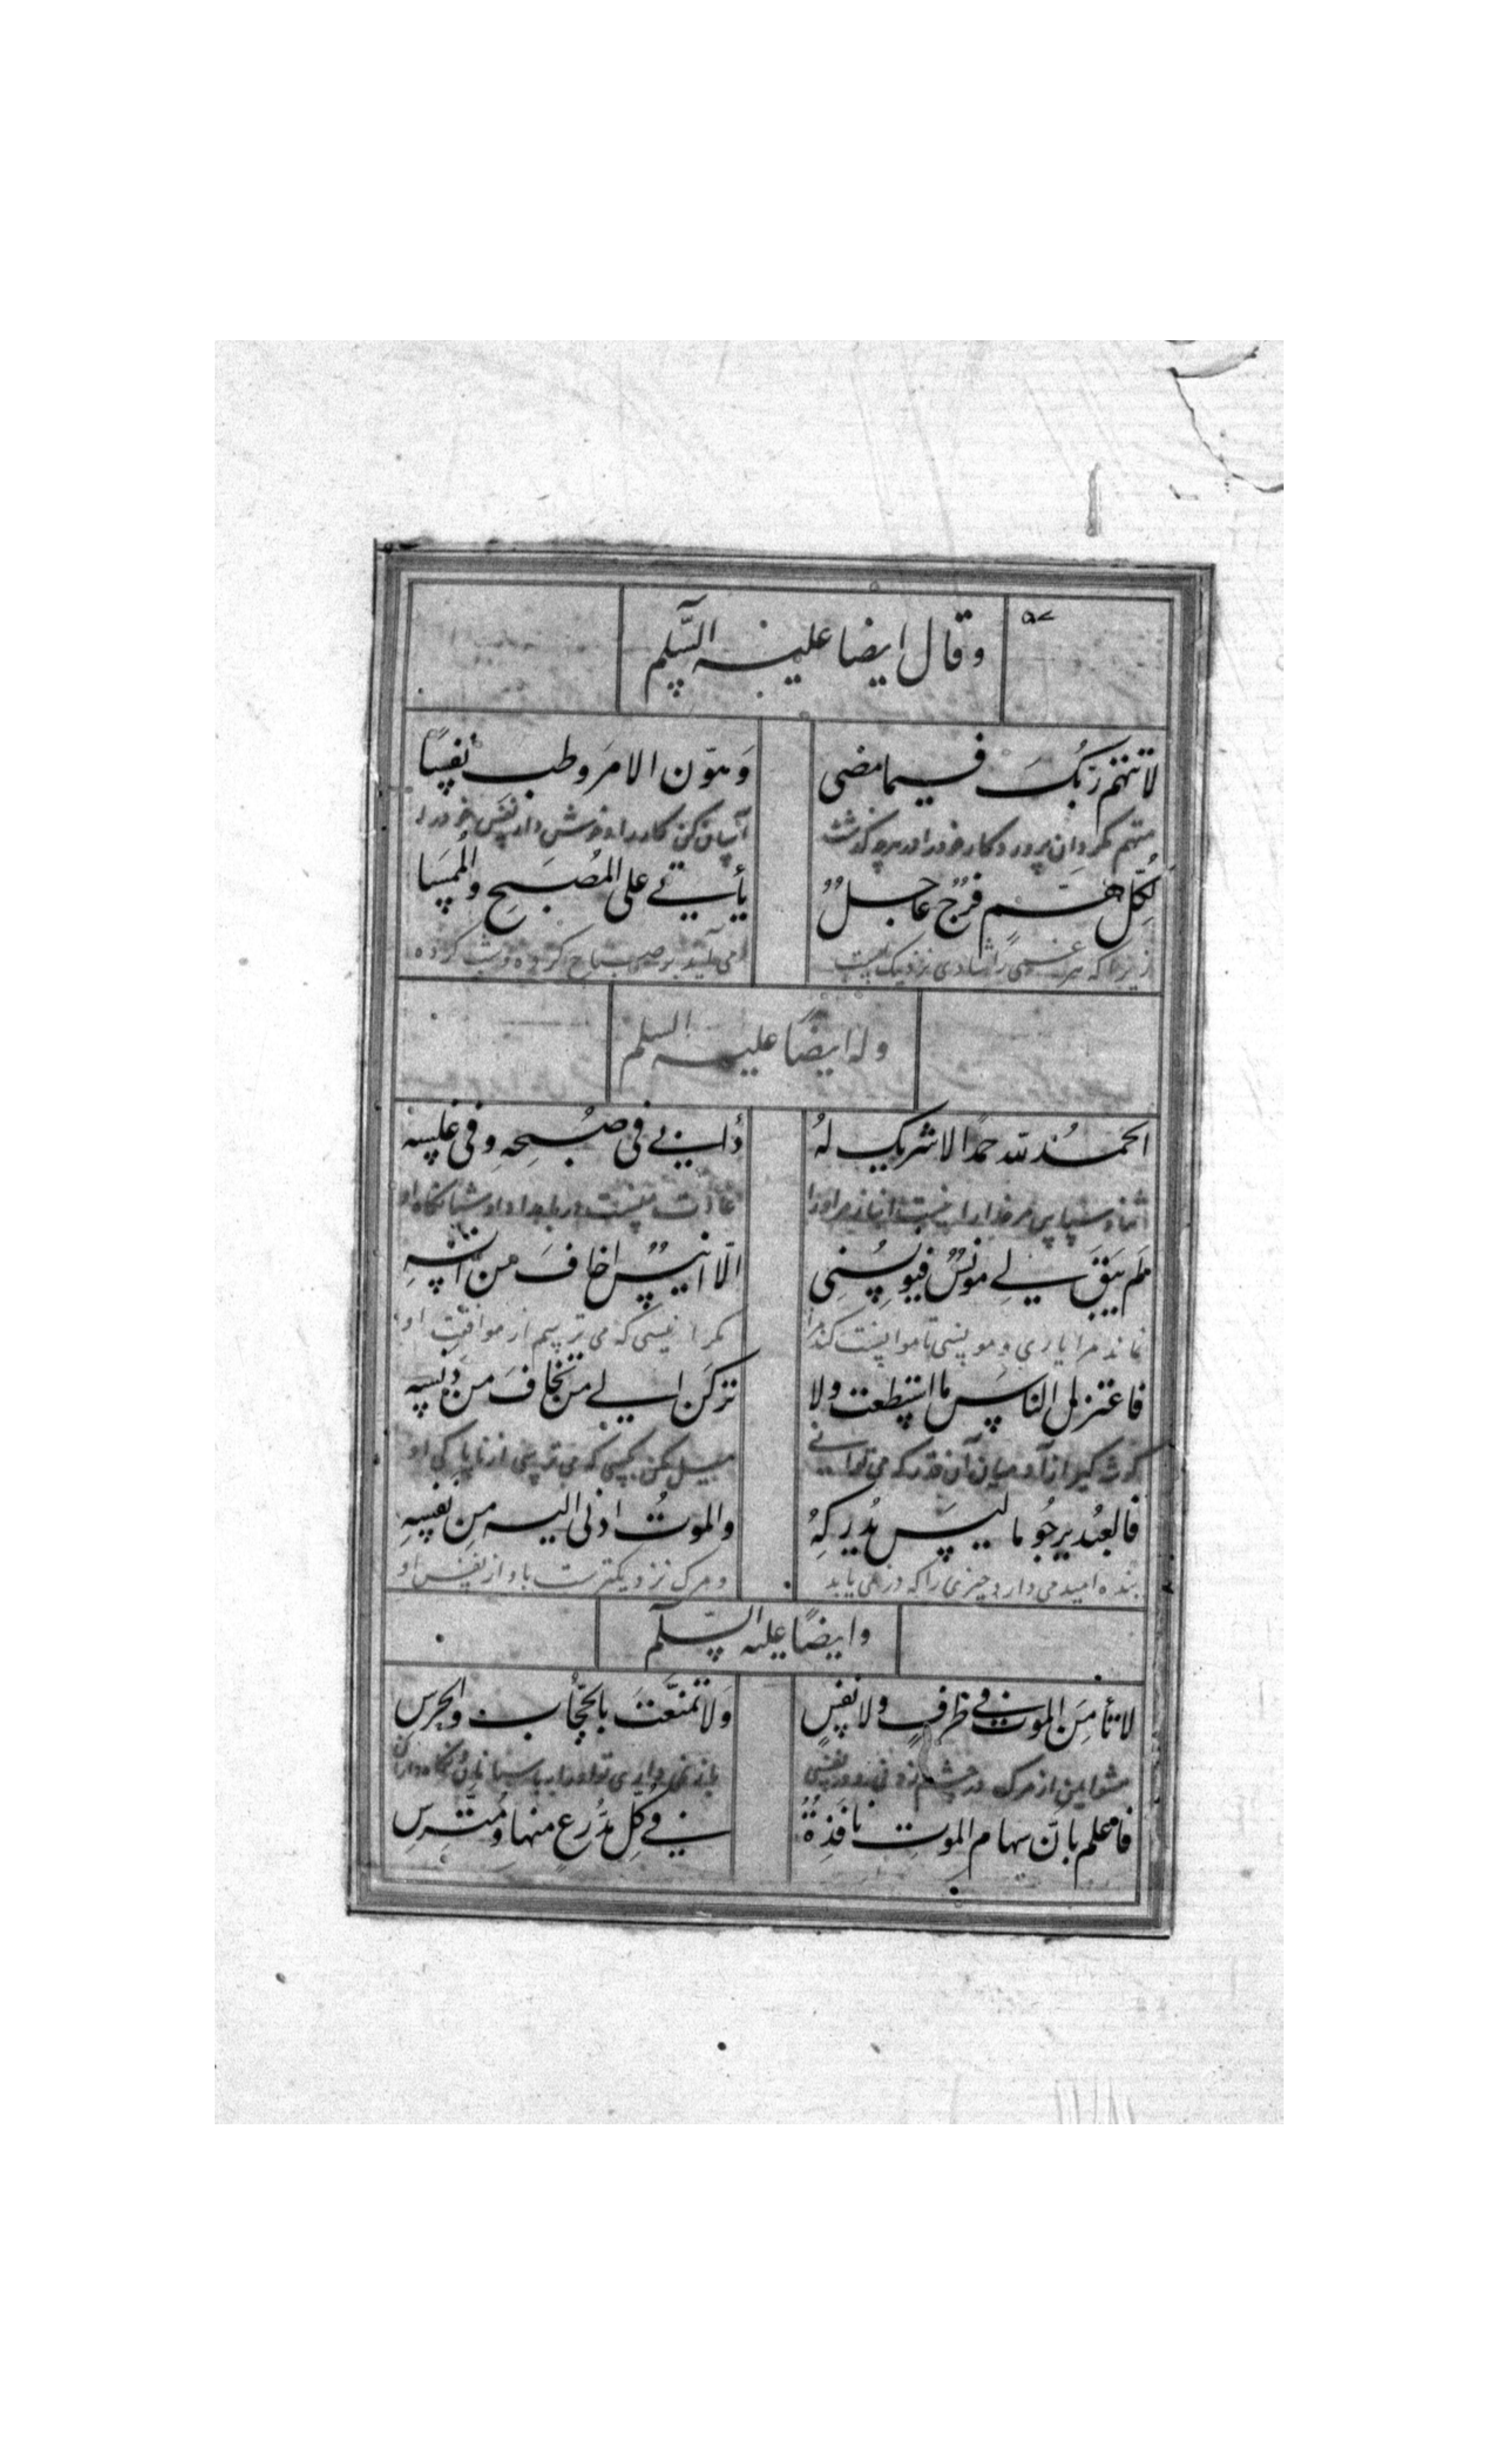 وقال ايضا عليه السّلم
لا تتهم ربّك فيما مضى وهوّن الامر وطب نفسًا
متهم مگردان پروردگار خود را در هرچه گذشت آسان كن كار را و خوش دار نفس خود را
لكلّ همّ فرج عاجل يأتي على المصبح والممسا
زيرا كه هر غمى را شادى نزديكست مى آيد بر صباح كرده و شب كرده
وله ايضًا عليه السلم
الحمد لله حمدا لا شريك له دأبي في صبحه وفي غلسه
عادت منست در بامداد او و شبانگاه او
لم يبق لي مونس فيونسني الّا انيس اخاف من انسه
نماند مرا يارى و مونسى تا موانست كند مرا مگر انيسى كه مى ترسم از موافقت او
فاعتزل الناس ما استطعت ولا تركن الي من تخاف من دنسه
گوشه گير از آدميان آن قدر كه مى توانى ميل مكن بكسى كه مى ترسى از ناپاكى او
فالعبد يرجو ما ليس يدركه والموت ادنى اليه من نفسه
بنده اميد مى دارد چيزى را كه در نمى يابد و مرگ نزديكترست باو از نفس او
وايضًا عليه السّلم
لا تأمن الموت في ظرف ولا نفس ولا تمنّعت بالحجّاب والحرس
مشو ايمن از مرگ در چشم زدنى و در نفسى
فاعلم بانّ سهام الموت نافذة في كل مدّرع منها ومتّرس